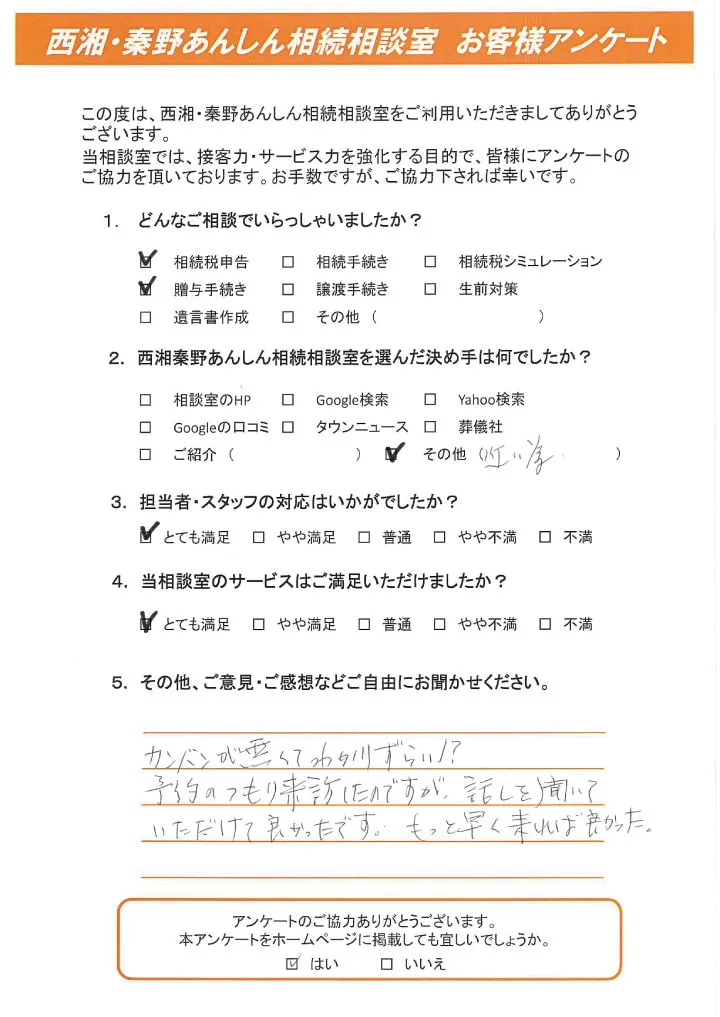 西湘・秦野あんしん相続相談室 お客様アンケート
この度は、西湘・秦野あんしん相続相談室をご利用いただきましてありがとう
ございます。
当相談室では、接客力・サービス力を強化する目的で、皆様にアンケートの
ご協力を頂いております。お手数ですが、ご協力下されば幸いです。
1. どんなご相談でいらっしゃいましたか？
☑ 相続税申告 □ 相続手続き □ 相続税シミュレーション
☑ 贈与手続き □ 譲渡手続き □ 生前対策
□ 遺言書作成 □ その他（ ）
2. 西湘秦野あんしん相続相談室を選んだ決め手は何でしたか？
□ 相談室のHP □ Google検索 □ Yahoo検索
□ Googleの口コミ □ タウンニュース □ 葬儀社
□ ご紹介（ ） ☑ その他（ ）
3. 担当者・スタッフの対応はいかがでしたか？
☑ とても満足 □ やや満足 □ 普通 □ やや不満 □ 不満
4. 当相談室のサービスはご満足いただけましたか？
☑ とても満足 □ やや満足 □ 普通 □ やや不満 □ 不満
5. その他、ご意見・ご感想などご自由にお聞かせください。
カンバンが無くてわかりずらい!?
予約のつもり来訪したのですが、話しを聞いて
いただけて良かったです。もっと早く来れば良かった。
アンケートのご協力ありがとうございます。
本アンケートをホームページに掲載しても宜しいでしょうか。
☑ はい □ いいえ